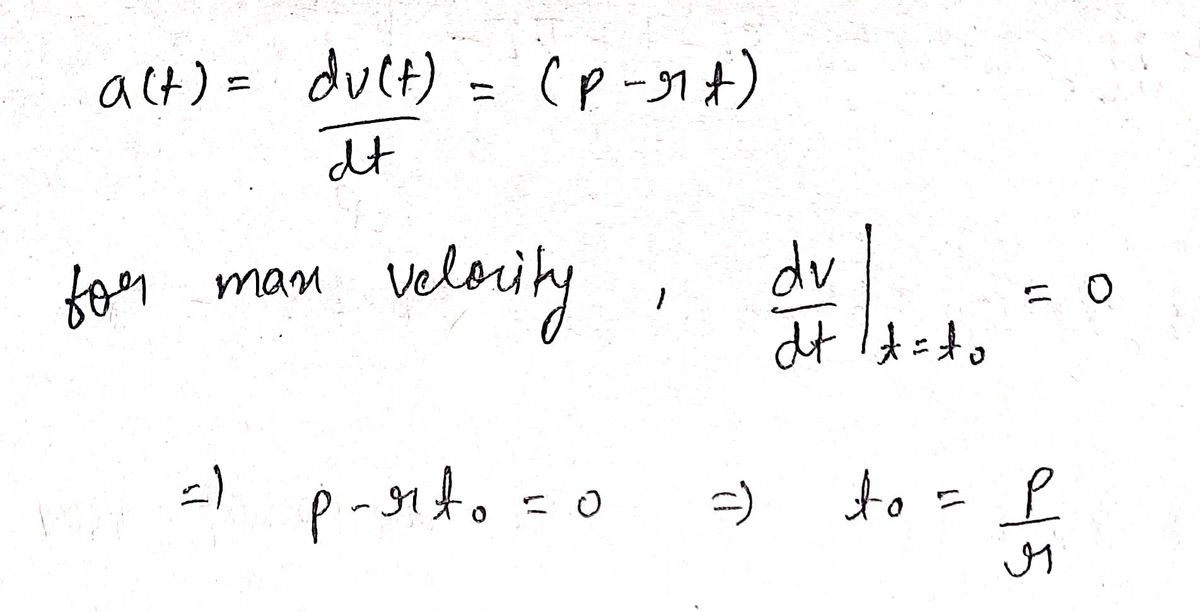 a(t) = dv(t)/dt = (p - rt)
for max velocity, dv/dt |t=t₀ = 0
=) p - rt₀ = 0 =) t₀ = p/r